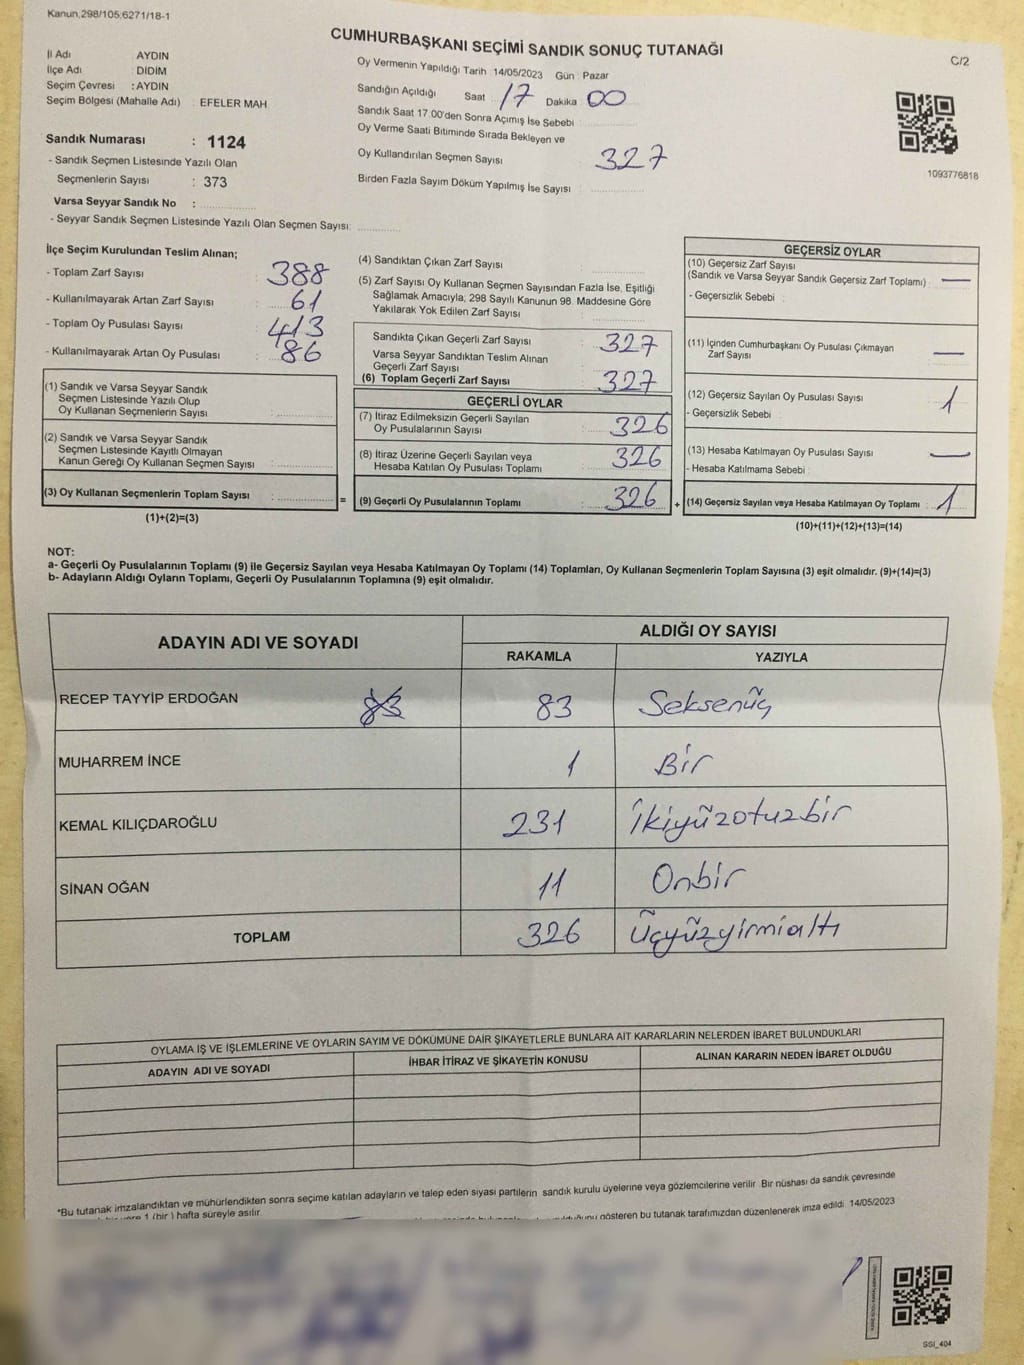 Kanun.298/105.6271/18-1
CUMHURBAŞKANI SEÇİMİ SANDIK SONUÇ TUTANAĞI
C/2
İl Adı AYDIN
İlçe Adı : DİDİM
Seçim Çevresi : AYDIN
Seçim Bölgesi (Mahalle Adı) : EFELER MAH
Sandık Numarası : 1124
- Sandık Seçmen Listesinde Yazılı Olan
Seçmenlerin Sayısı : 373
Varsa Seyyar Sandık No :
- Seyyar Sandık Seçmen Listesinde Yazılı Olan Seçmen Sayısı:
Oy Vermenin Yapıldığı Tarih 14/05/2023 Gün : Pazar
Sandığın Açıldığı Saat 17 Dakika 00
Sandık Saat 17.00'den Sonra Açımış İse Sebebi :
Oy Verme Saati Bitiminde Sırada Bekleyen ve
Oy Kullandırılan Seçmen Sayısı : 327
Birden Fazla Sayım Döküm Yapılmış İse Sayısı :
1093776818
İlçe Seçim Kurulundan Teslim Alınan;
- Toplam Zarf Sayısı : 388
- Kullanılmayarak Artan Zarf Sayısı : 61
- Toplam Oy Pusulası Sayısı : 413
- Kullanılmayarak Artan Oy Pusulası : 86
(1) Sandık ve Varsa Seyyar Sandık
Seçmen Listesinde Yazılı Olup
Oy Kullanan Seçmenlerin Sayısı :
(2) Sandık ve Varsa Seyyar Sandık
Seçmen Listesinde Kayıtlı Olmayan
Kanun Gereği Oy Kullanan Seçmen Sayısı :
(3) Oy Kullanan Seçmenlerin Toplam Sayısı :
(1)+(2)=(3)
=
(4) Sandıktan Çıkan Zarf Sayısı :
(5) Zarf Sayısı Oy Kullanan Seçmen Sayısından Fazla İse, Eşitliği
Sağlamak Amacıyla; 298 Sayılı Kanunun 98. Maddesine Göre
Yakılarak Yok Edilen Zarf Sayısı :
Sandıkta Çıkan Geçerli Zarf Sayısı : 327
Varsa Seyyar Sandıktan Teslim Alınan
Geçerli Zarf Sayısı :
(6) Toplam Geçerli Zarf Sayısı : 327
GEÇERLİ OYLAR
(7) İtiraz Edilmeksizin Geçerli Sayılan
Oy Pusulalarının Sayısı : 326
(8) İtiraz Üzerine Geçerli Sayılan veya
Hesaba Katılan Oy Pusulası Toplamı : 326
(9) Geçerli Oy Pusulalarının Toplamı : 326
+
GEÇERSİZ OYLAR
(10) Geçersiz Zarf Sayısı
(Sandık ve Varsa Seyyar Sandık Geçersiz Zarf Toplamı) : —
- Geçersizlik Sebebi :
(11) İçinden Cumhurbaşkanı Oy Pusulası Çıkmayan
Zarf Sayısı : —
(12) Geçersiz Sayılan Oy Pusulası Sayısı : 1
- Geçersizlik Sebebi :
(13) Hesaba Katılmayan Oy Pusulası Sayısı : —
- Hesaba Katılmama Sebebi :
(14) Geçersiz Sayılan veya Hesaba Katılmayan Oy Toplamı : 1
(10)+(11)+(12)+(13)=(14)
NOT:
a- Geçerli Oy Pusulalarının Toplamı (9) ile Geçersiz Sayılan veya Hesaba Katılmayan Oy Toplamı (14) Toplamları, Oy Kullanan Seçmenlerin Toplam Sayısına (3) eşit olmalıdır. (9)+(14)=(3)
b- Adayların Aldığı Oyların Toplamı, Geçerli Oy Pusulalarının Toplamına (9) eşit olmalıdır.
ADAYIN ADI VE SOYADI ALDIĞI OY SAYISI
RAKAMLA YAZIYLA
RECEP TAYYİP ERDOĞAN 83 83 Seksenüç
MUHARREM İNCE 1 Bir
KEMAL KILIÇDAROĞLU 231 İkiyüzotuzbir
SİNAN OĞAN 11 Onbir
TOPLAM 326 Üçyüzyirmialtı
OYLAMA İŞ VE İŞLEMLERİNE VE OYLARIN SAYIM VE DÖKÜMÜNE DAİR ŞİKAYETLERLE BUNLARA AİT KARARLARIN NELERDEN İBARET BULUNDUKLARI
ADAYIN ADI VE SOYADI İHBAR İTİRAZ VE ŞİKAYETİN KONUSU ALINAN KARARIN NEDEN İBARET OLDUĞU
*Bu tutanak imzalandıktan ve mühürlendikten sonra seçime katılan adayların ve talep eden siyasi partilerin sandık kurulu üyelerine veya gözlemcilerine verilir. Bir nüshası da sandık çevresinde
1 (bir) hafta süreyle asılır.
gösteren bu tutanak tarafımızdan düzenlenerek imza edildi. 14/05/2023
SSİ_404